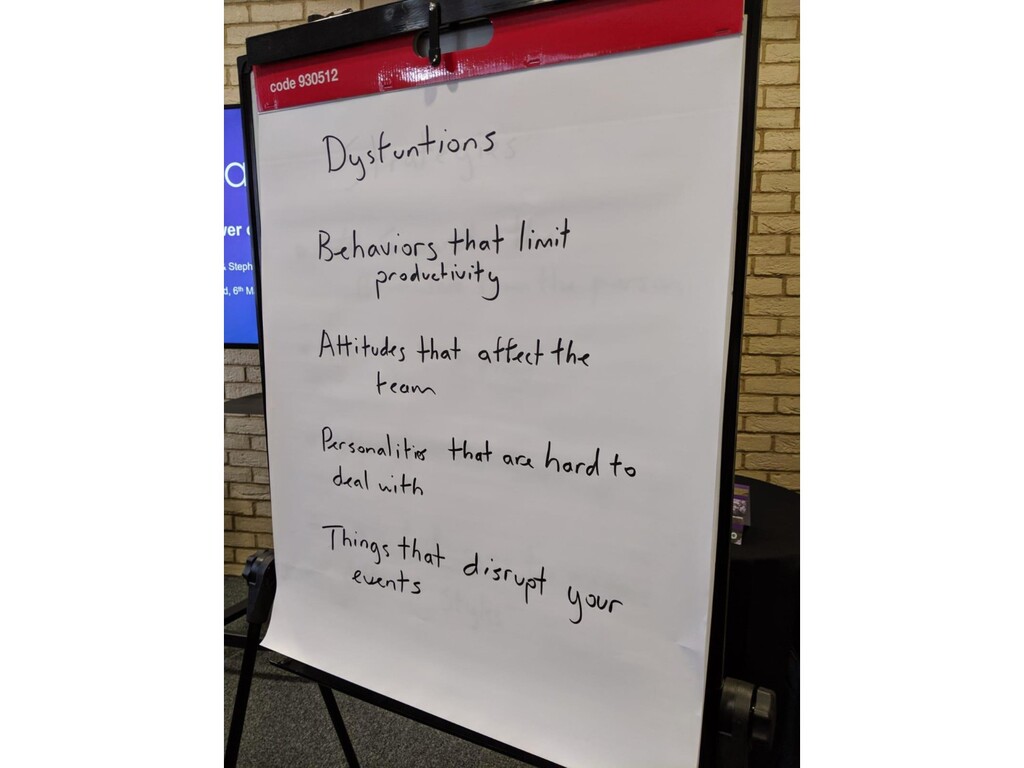 code 930512
Dysfuntions
Behaviors that limit
productivity
Attitudes that affect the
team
Personalities that are hard to
deal with
Things that disrupt your
events
a
ver
& Steph
d, 6th M